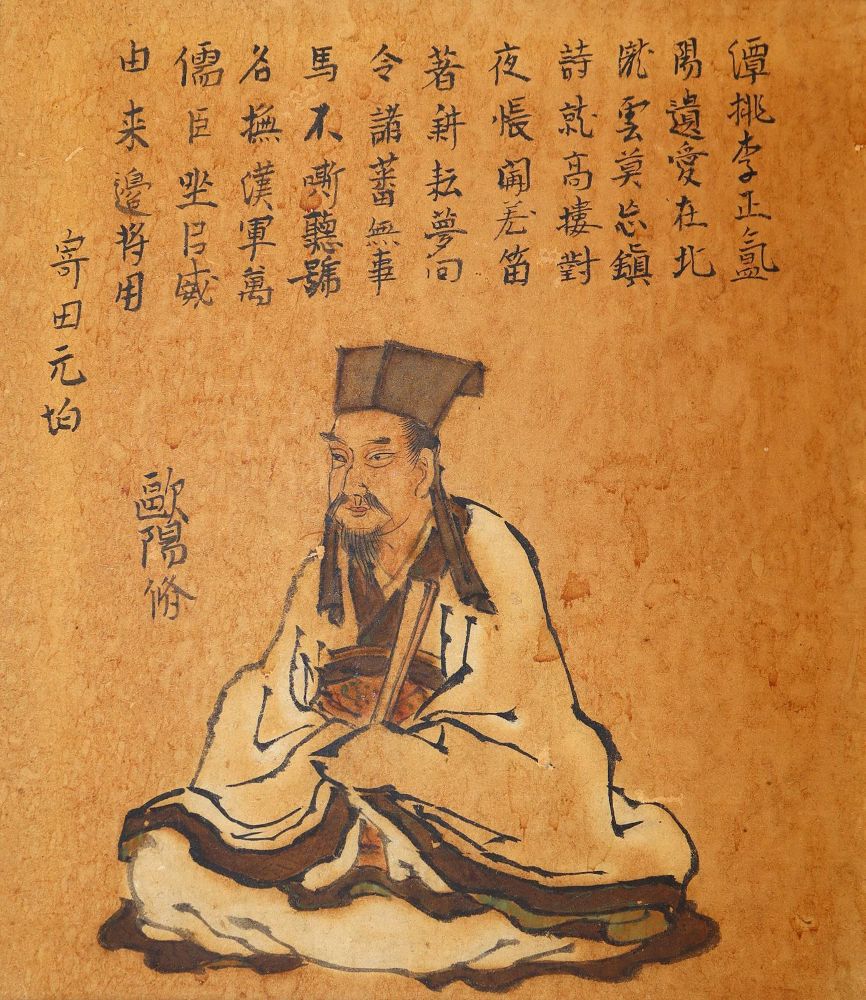 由来邊将用
儒臣坐㠯威
名撫漢軍萬
馬不嘶聽號
令諸蕃無事
著耕耘夢回
夜帳聞羌笛
詩就高樓對
隴雲莫忘鎮
陽遺愛在北
潭桃李正氲
寄田元均
歐陽脩